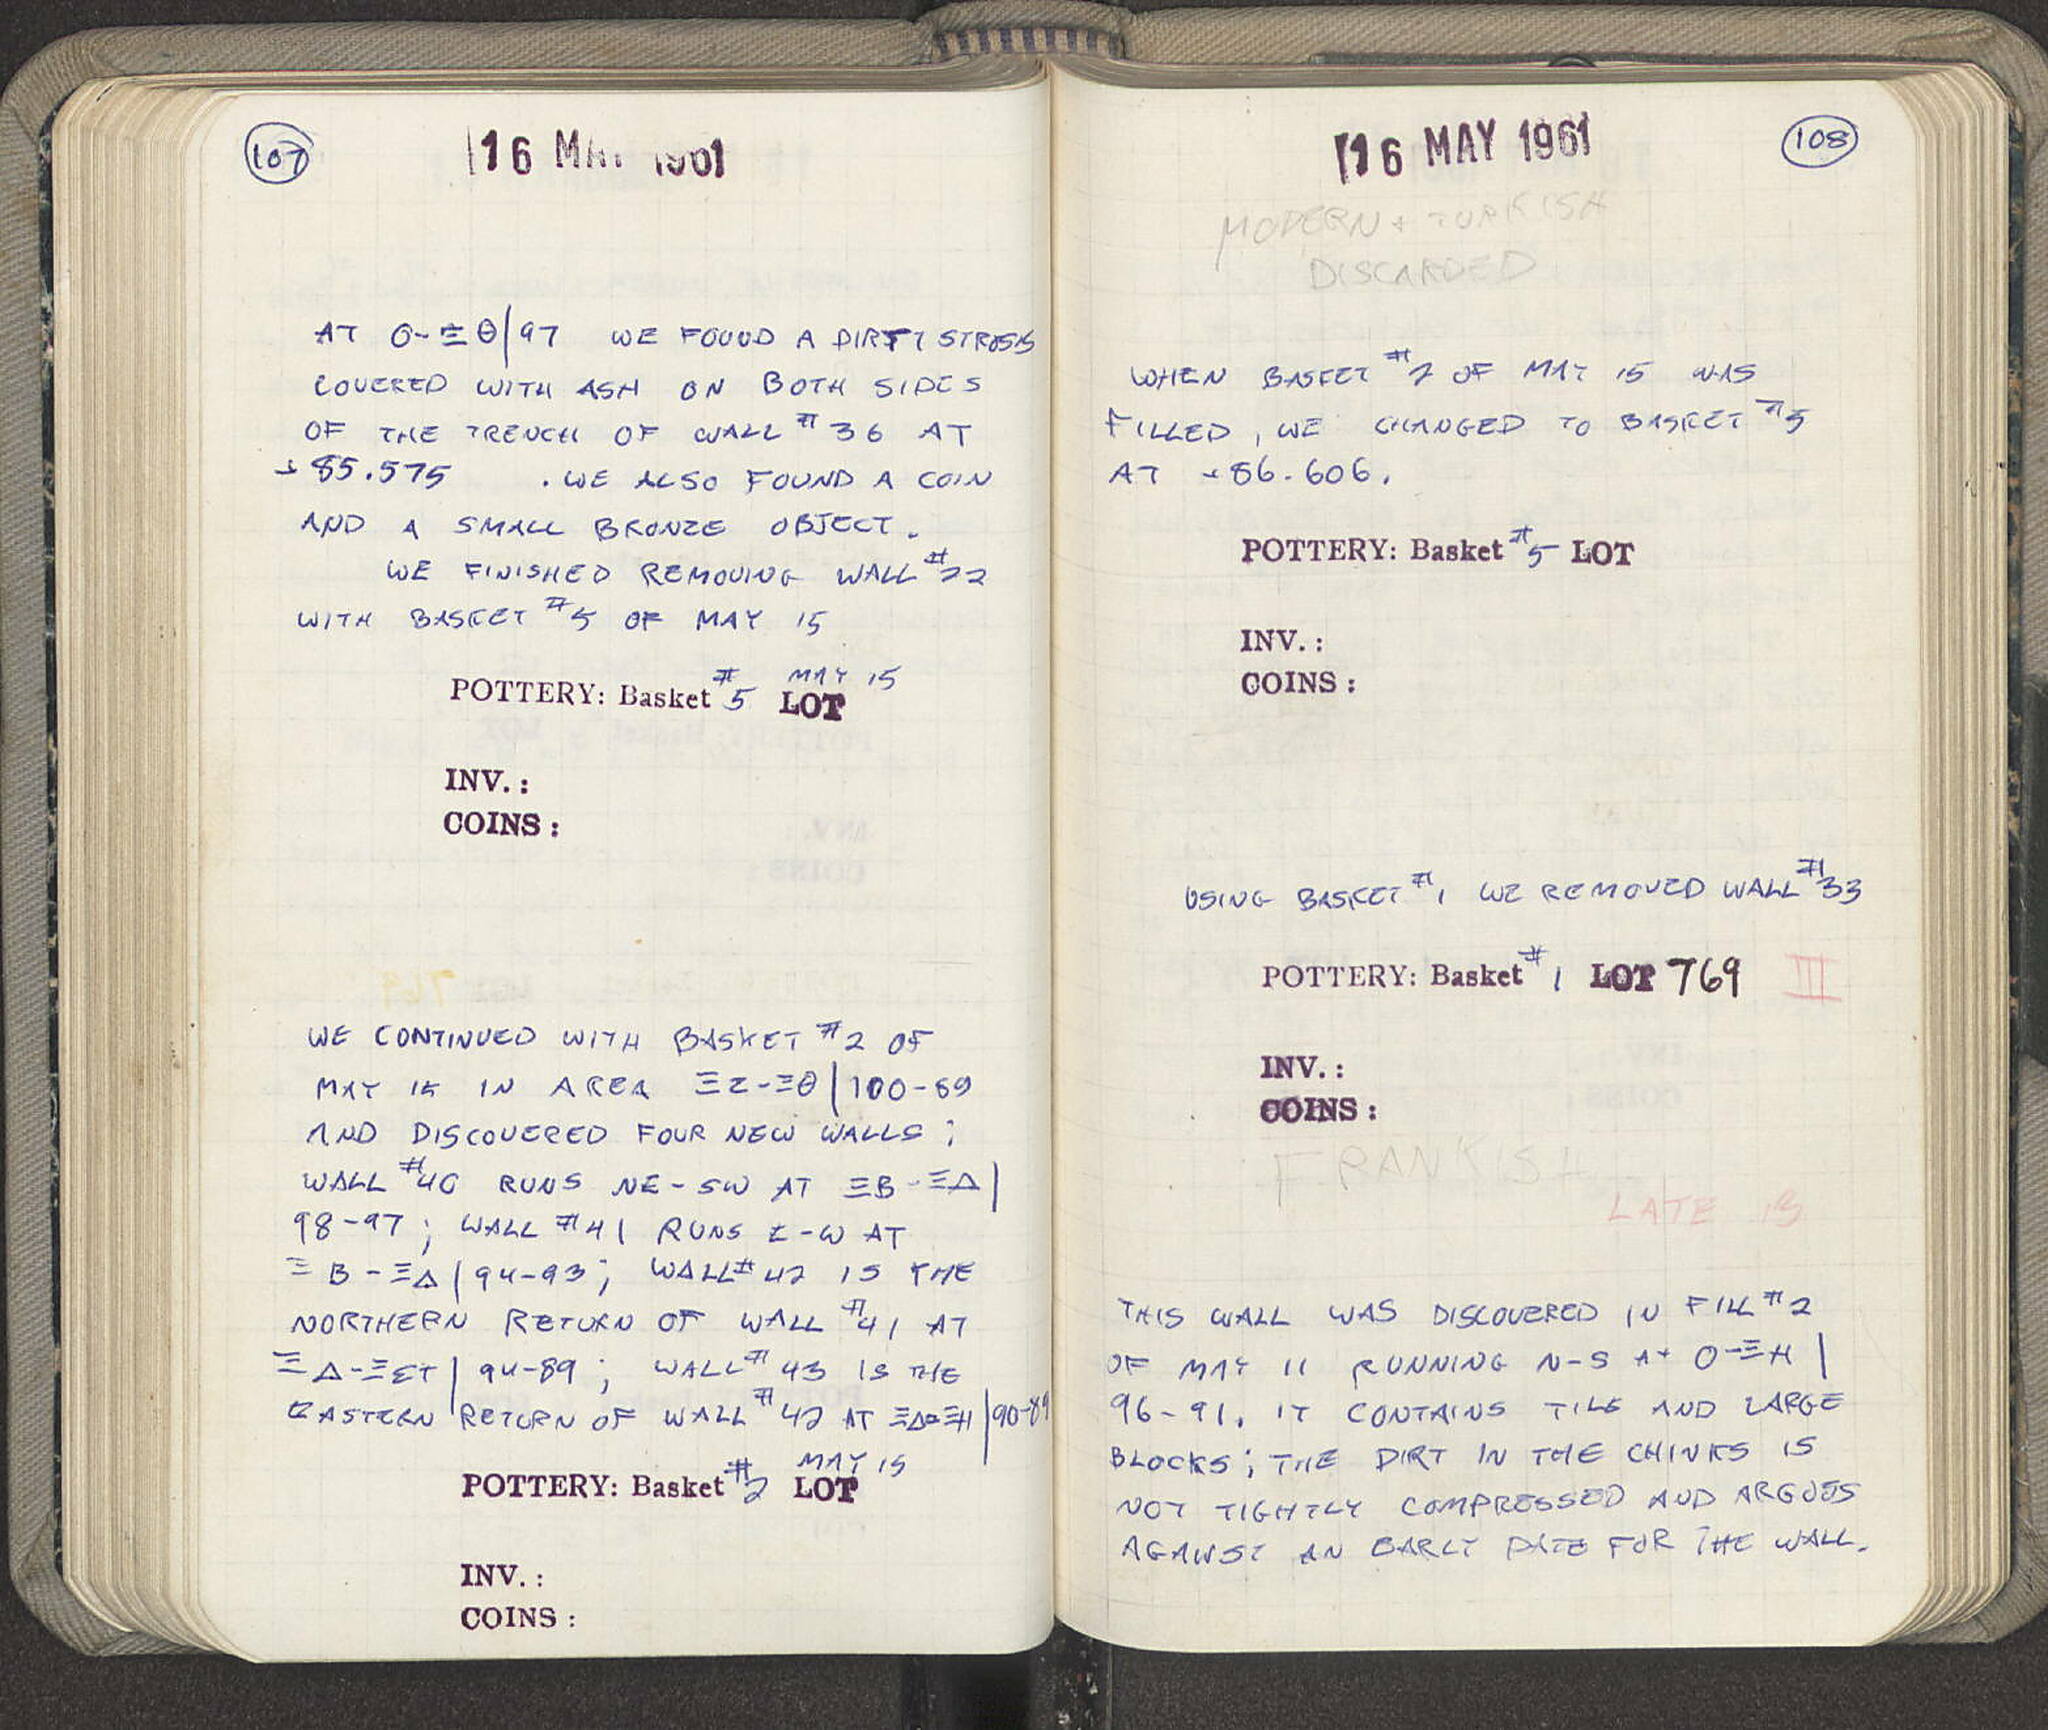 107
16 MAY 1961
AT O-ΞΘ|97 WE FOUND A DIRTY STROSIS
COVERED WITH ASH ON BOTH SIDES
OF THE TRENCH OF WALL #36 AT
+85.575 . WE ALSO FOUND A COIN
AND A SMALL BRONZE OBJECT.
WE FINISHED REMOVING WALL #22
WITH BASKET #5 OF MAY 15
POTTERY: Basket #5 MAY 15 LOT
INV.:
COINS:
WE CONTINUED WITH BASKET #2 OF
MAY 15 IN AREA ΞΖ-ΞΘ|100-89
AND DISCOVERED FOUR NEW WALLS;
WALL #40 RUNS NE-SW AT ΞB-ΞΔ|
98-97; WALL #41 RUNS E-W AT
ΞB-ΞΔ|94-93; WALL #42 IS THE
NORTHERN RETURN OF WALL #41 AT
ΞΔ-ΞΣΤ|94-89; WALL #43 IS THE
EASTERN RETURN OF WALL #42 AT ΞΔ-ΞH|90-89
POTTERY: Basket #2 MAY 15 LOT
INV.:
COINS:
108
16 MAY 1961
MODERN + TURKISH
DISCARDED
WHEN BASKET #2 OF MAY 15 WAS
FILLED, WE CHANGED TO BASKET #5
AT +86.606.
POTTERY: Basket #5 LOT
INV.:
COINS:
USING BASKET #1 WE REMOVED WALL #33
POTTERY: Basket #1 LOT 769 III
INV.:
COINS:
FRANKISH
LATE 13
THIS WALL WAS DISCOVERED IN FILL #2
OF MAY 11 RUNNING N-S AT O-ΞH|
96-91. IT CONTAINS TILE AND LARGE
BLOCKS; THE DIRT IN THE CHINKS IS
NOT TIGHTLY COMPRESSED AND ARGUES
AGAINST AN EARLY DATE FOR THE WALL.